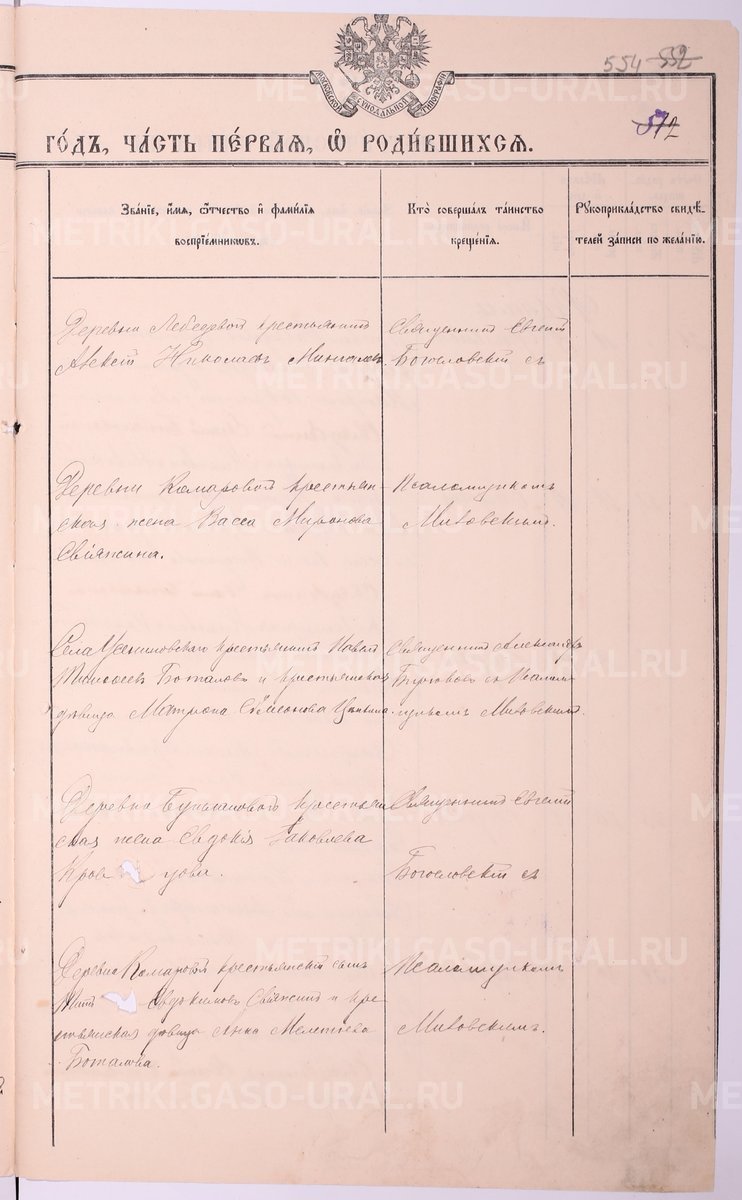 МОСКОВСКОЙ СѴНОДАЛЬНОЙ ТИПОГРАФІИ
554 552
572
ГО́ДЪ, ЧА́СТЬ ПЕ́РВАѦ, Ѡ҆ РОДИ́ВШИХСѦ.
Зва́нїе, и҆́мѧ, ѻ҆́тчество и҆ фами́лїѧ
воспрїе́мникѡвъ.
Кто̀ соверша́лъ та́инство
креще́нїѧ.
Рꙋкоприкла́дство свидѣ́-
телей за́писи по жела́нїю.
Деревни Лебедевой крестьянинъ
Алексѣй Николаевъ
Священникъ Евгеній
Богословскій съ
Деревни Комаровой крестьян-
ская жена Васса Миронова
Свяжина.
Псаломщикомъ
Миковскимъ.
Села крестьянинъ Павелъ
Тимофеевъ Боталовъ и крестьянская
дѣвица Матрона Симеонова
Священникъ Александръ
съ Псалом-
щикомъ Миковскимъ.
Деревни крестьян-
ская жена Евдокія Яковлева
Священникъ Евгеній
Богословскій съ
Деревни Комаровой крестьянскій сынъ
Евдокимовъ Свяжинъ и кре-
стьянская дѣвица Анна Мелетіева
Боталова.
Псаломщикомъ
Миковскимъ.
METRIKI.GASO-URAL.RU